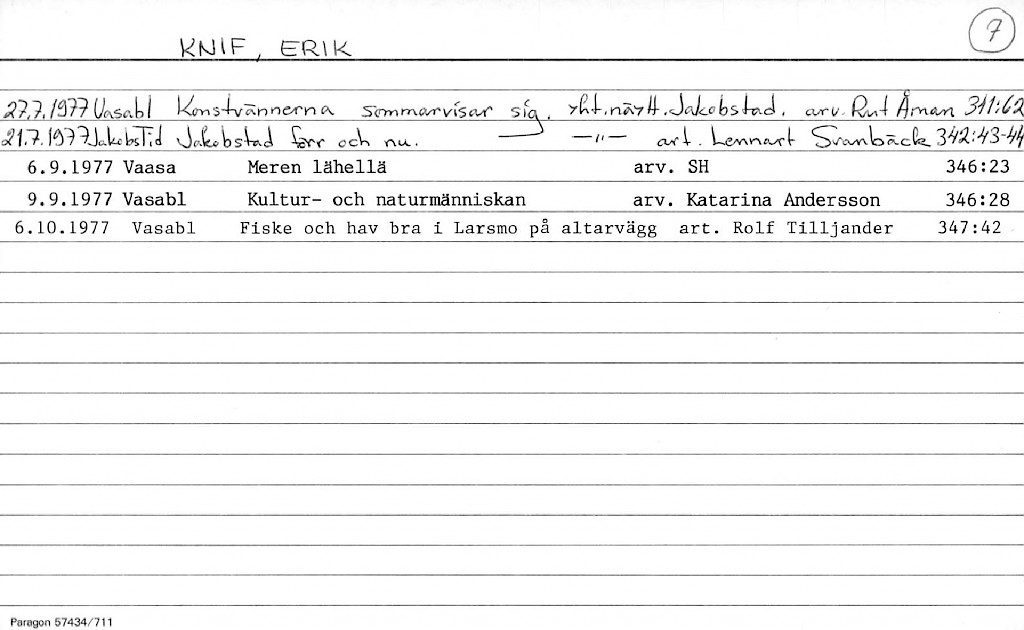 7
KNIF, ERIK
27.7.1977 Vasabl Konstvännerna sommarvisar sig. yht.näytt. Jakobstad. arv. Rut Åman 311:62
21.7.1977 JakobsTid Jakobstad förr och nu. —"— art. Lennart Svanbäck 342:43-44
6.9.1977 Vaasa Meren lähellä arv. SH 346:23
9.9.1977 Vasabl Kultur- och naturmänniskan arv. Katarina Andersson 346:28
6.10.1977 Vasabl Fiske och hav bra i Larsmo på altarvägg art. Rolf Tilljander 347:42
Paragon 57434/711